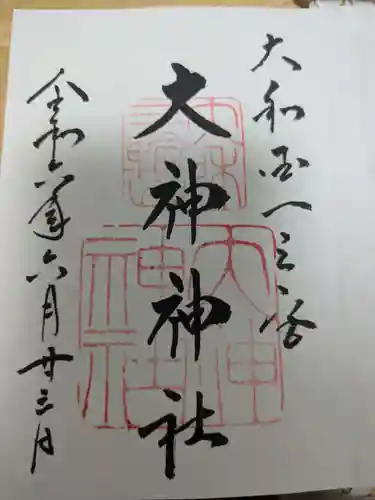 大和国一之宮
大神神社
令和六年六月廿三日